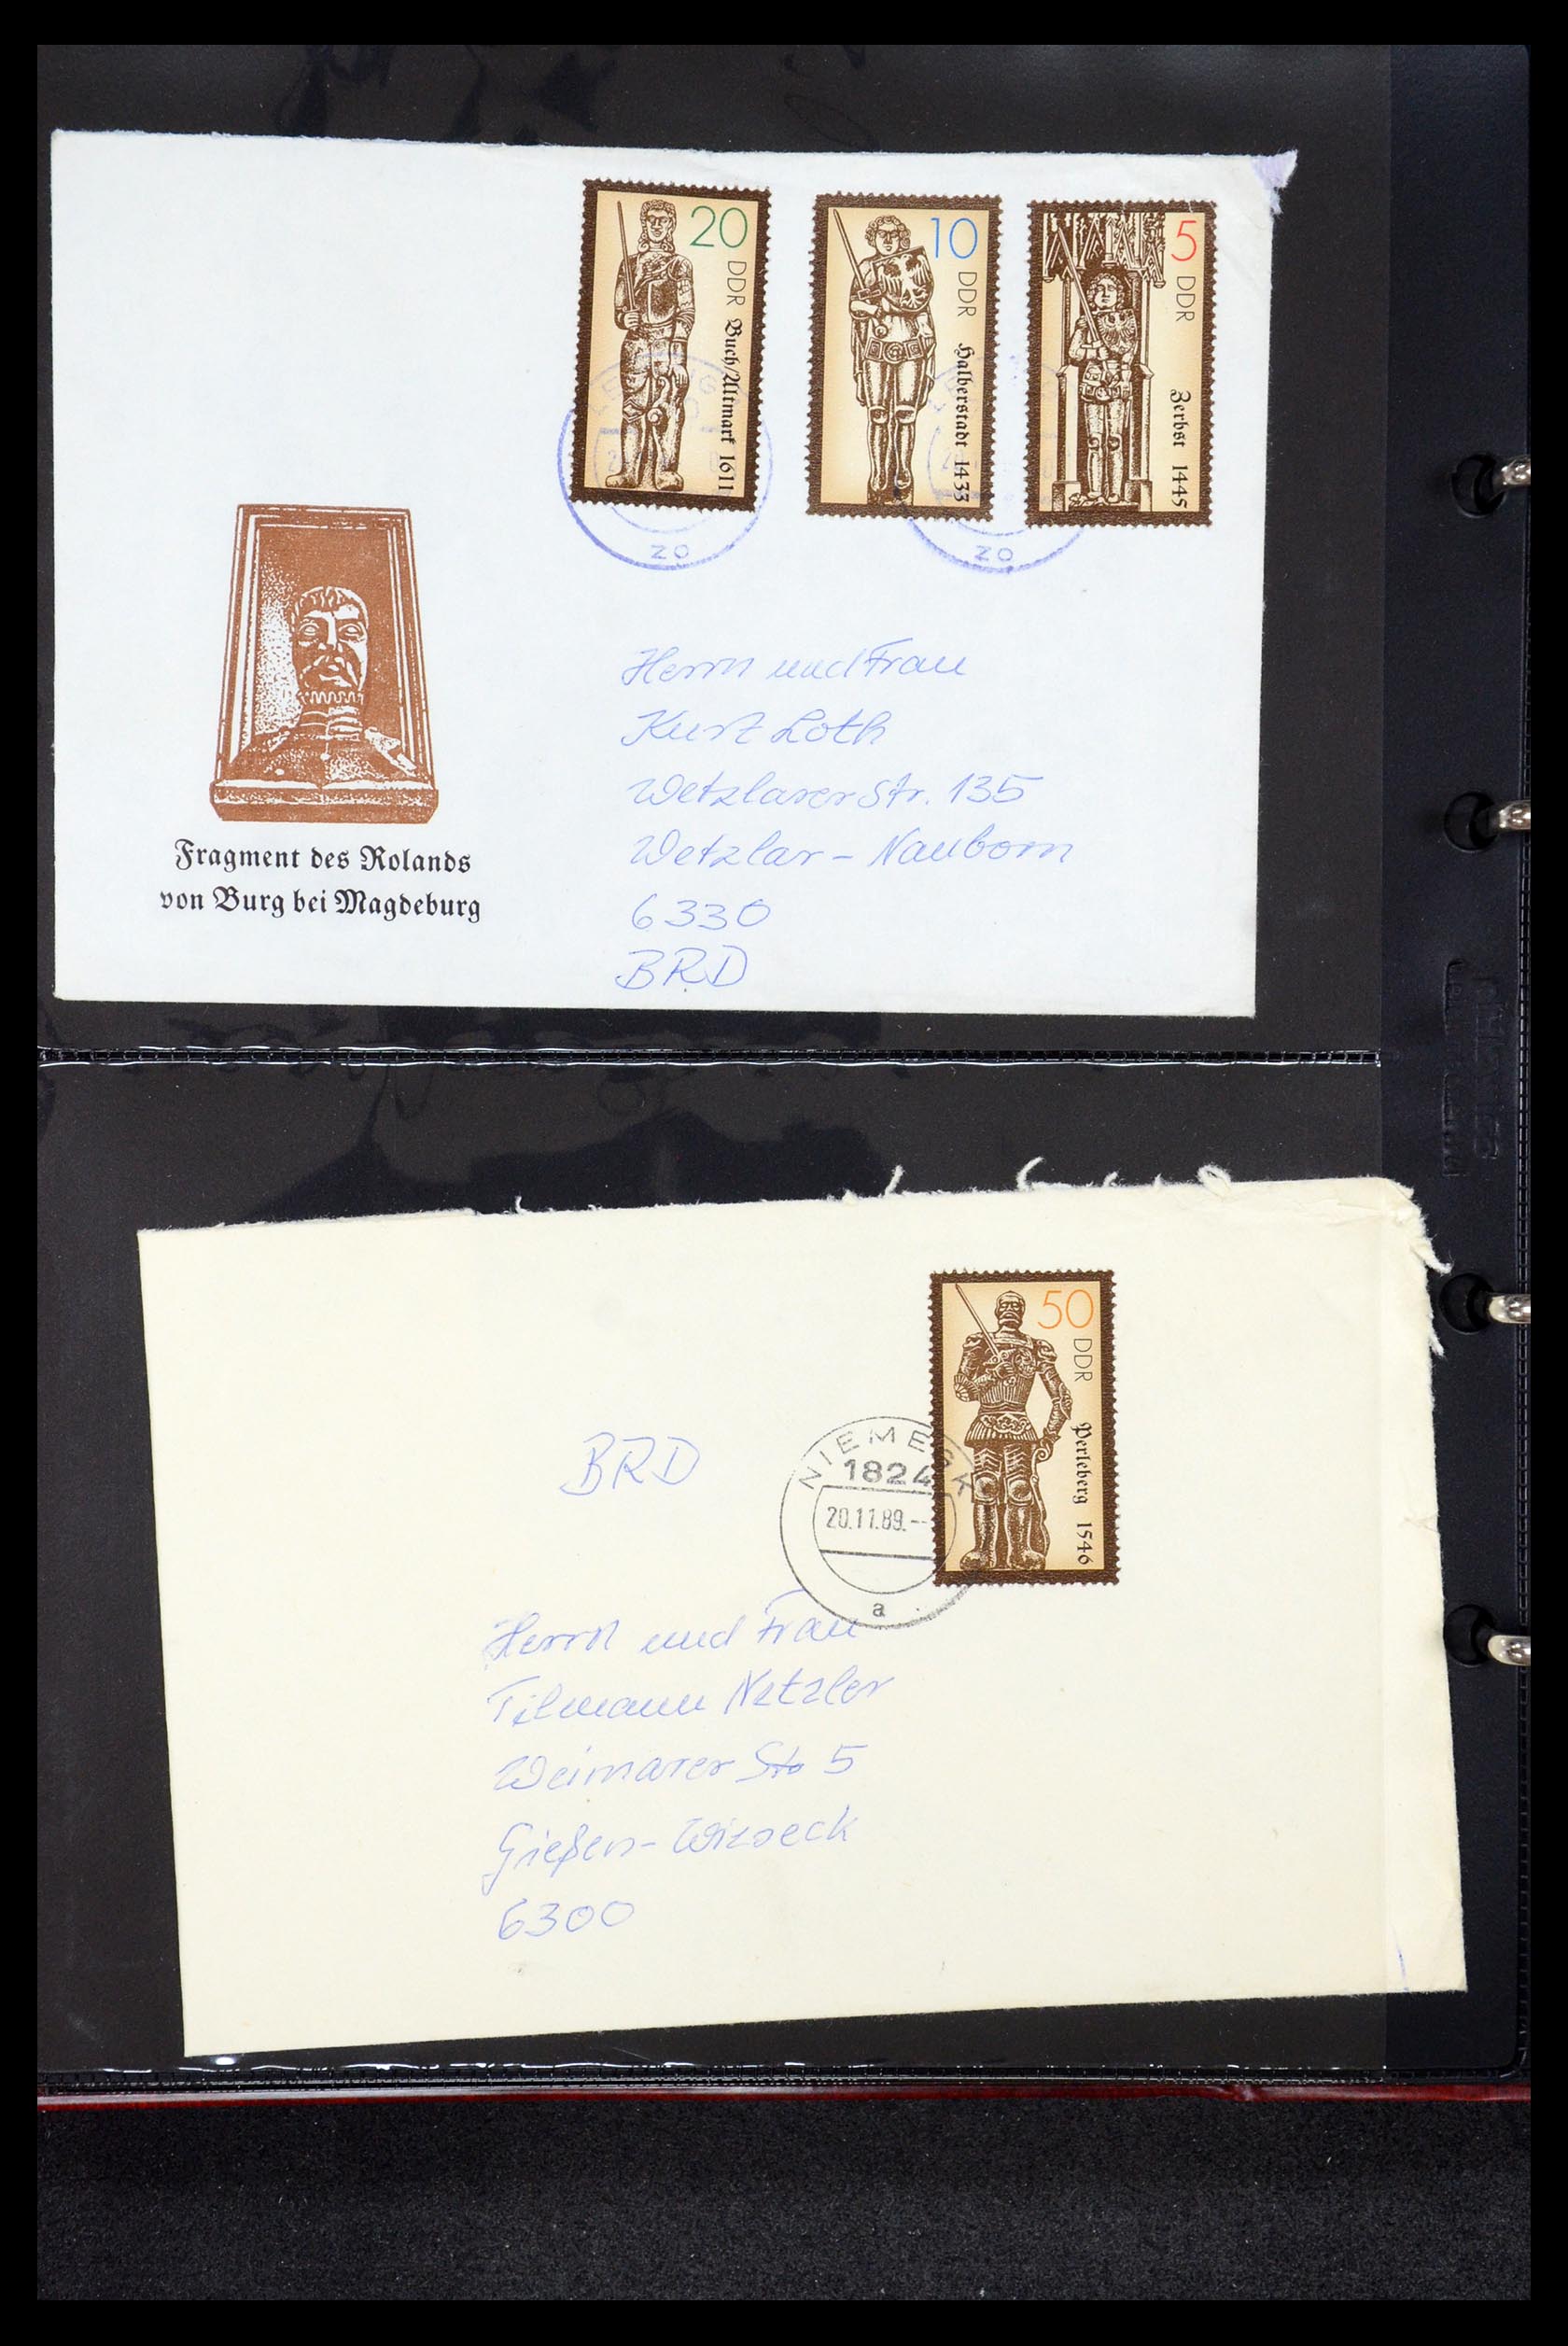 20 DDR Buch/Altmark 1611
10 DDR Halberstadt 1433
5 DDR Zerbst 1445
zo
zo
Fragment des Rolands
von Burg bei Magdeburg
Herrn und Frau
Kurt Loth
Wetzlarer Str. 135
Wetzlar - Nauborn
6330
BRD
50 DDR Perleberg 1546
NIEMEGK
1824
20.11.89.--
a
BRD
Herrn und Frau
Tilmann Netzler
Weimarer Str 5
Gießen - Wieseck
6300